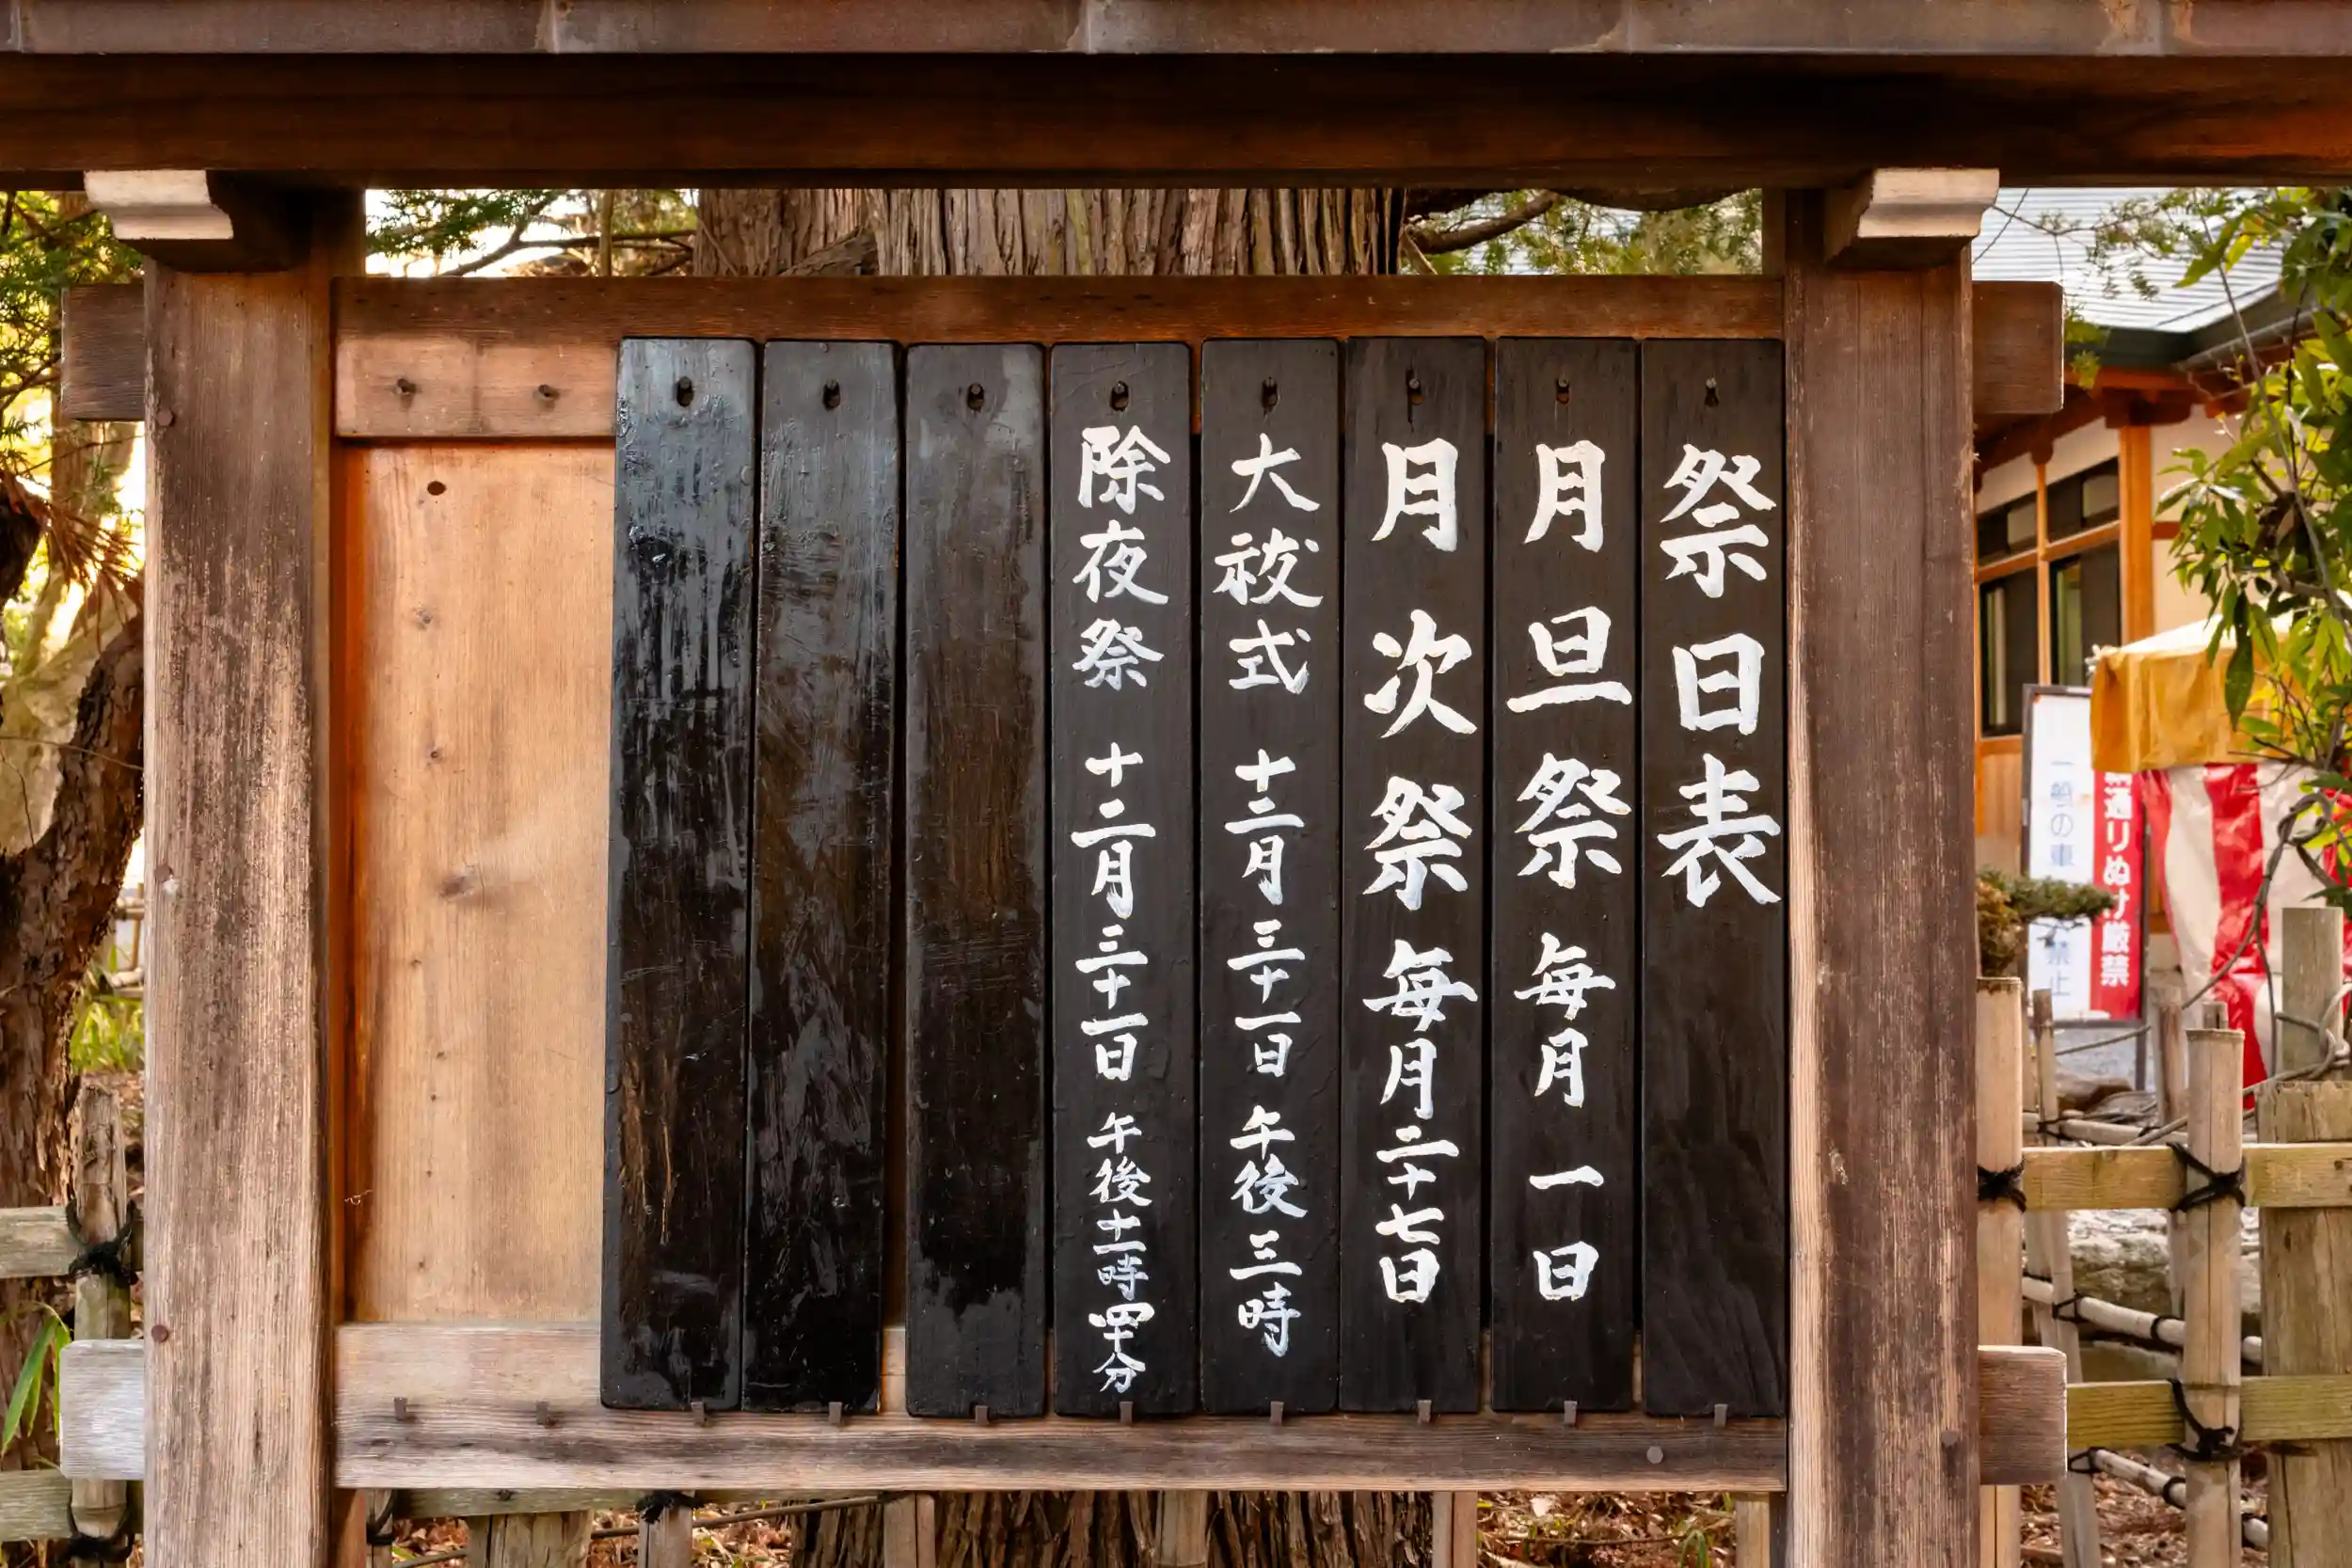 祭日表
月旦祭 毎月 一日
月次祭 毎月二十七日
大祓式 十二月三十一日 午後三時
除夜祭 十二月三十一日 午後十一時四十分
通りぬけ厳禁
一般の車
禁止